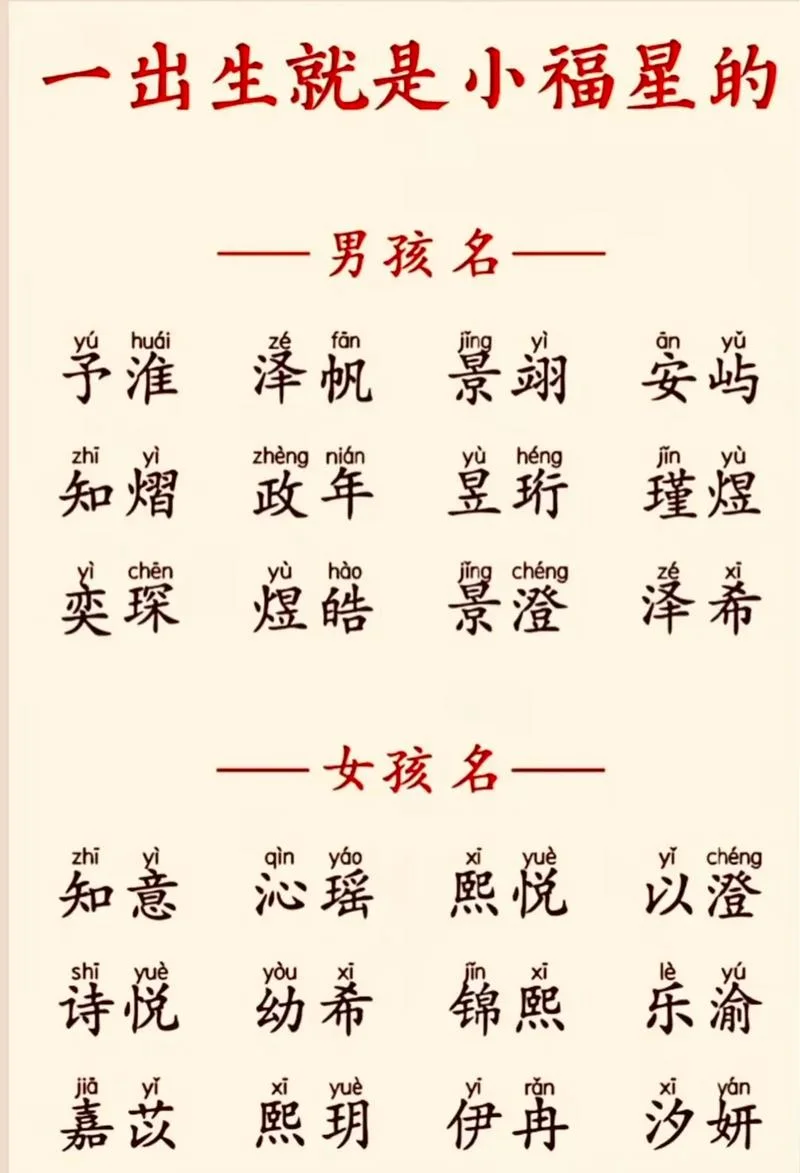 一出生就是小福星的
男孩名
yú huái zé fān jǐng yì ān yǔ
予淮 泽帆 景翊 安屿
zhī yì zhèng nián yù héng jǐn yù
知熠 政年 昱珩 瑾煜
yì chēn yù hào jǐng chéng zé xī
奕琛 煜皓 景澄 泽希
女孩名
zhī yì qìn yáo xī yuè yǐ chéng
知意 沁瑶 熙悦 以澄
shī yuè yòu xī jǐn xī lè yú
诗悦 幼希 锦熙 乐渝
jiā yǐ xī yuè yī rǎn xī yán
嘉苡 熙玥 伊冉 汐妍